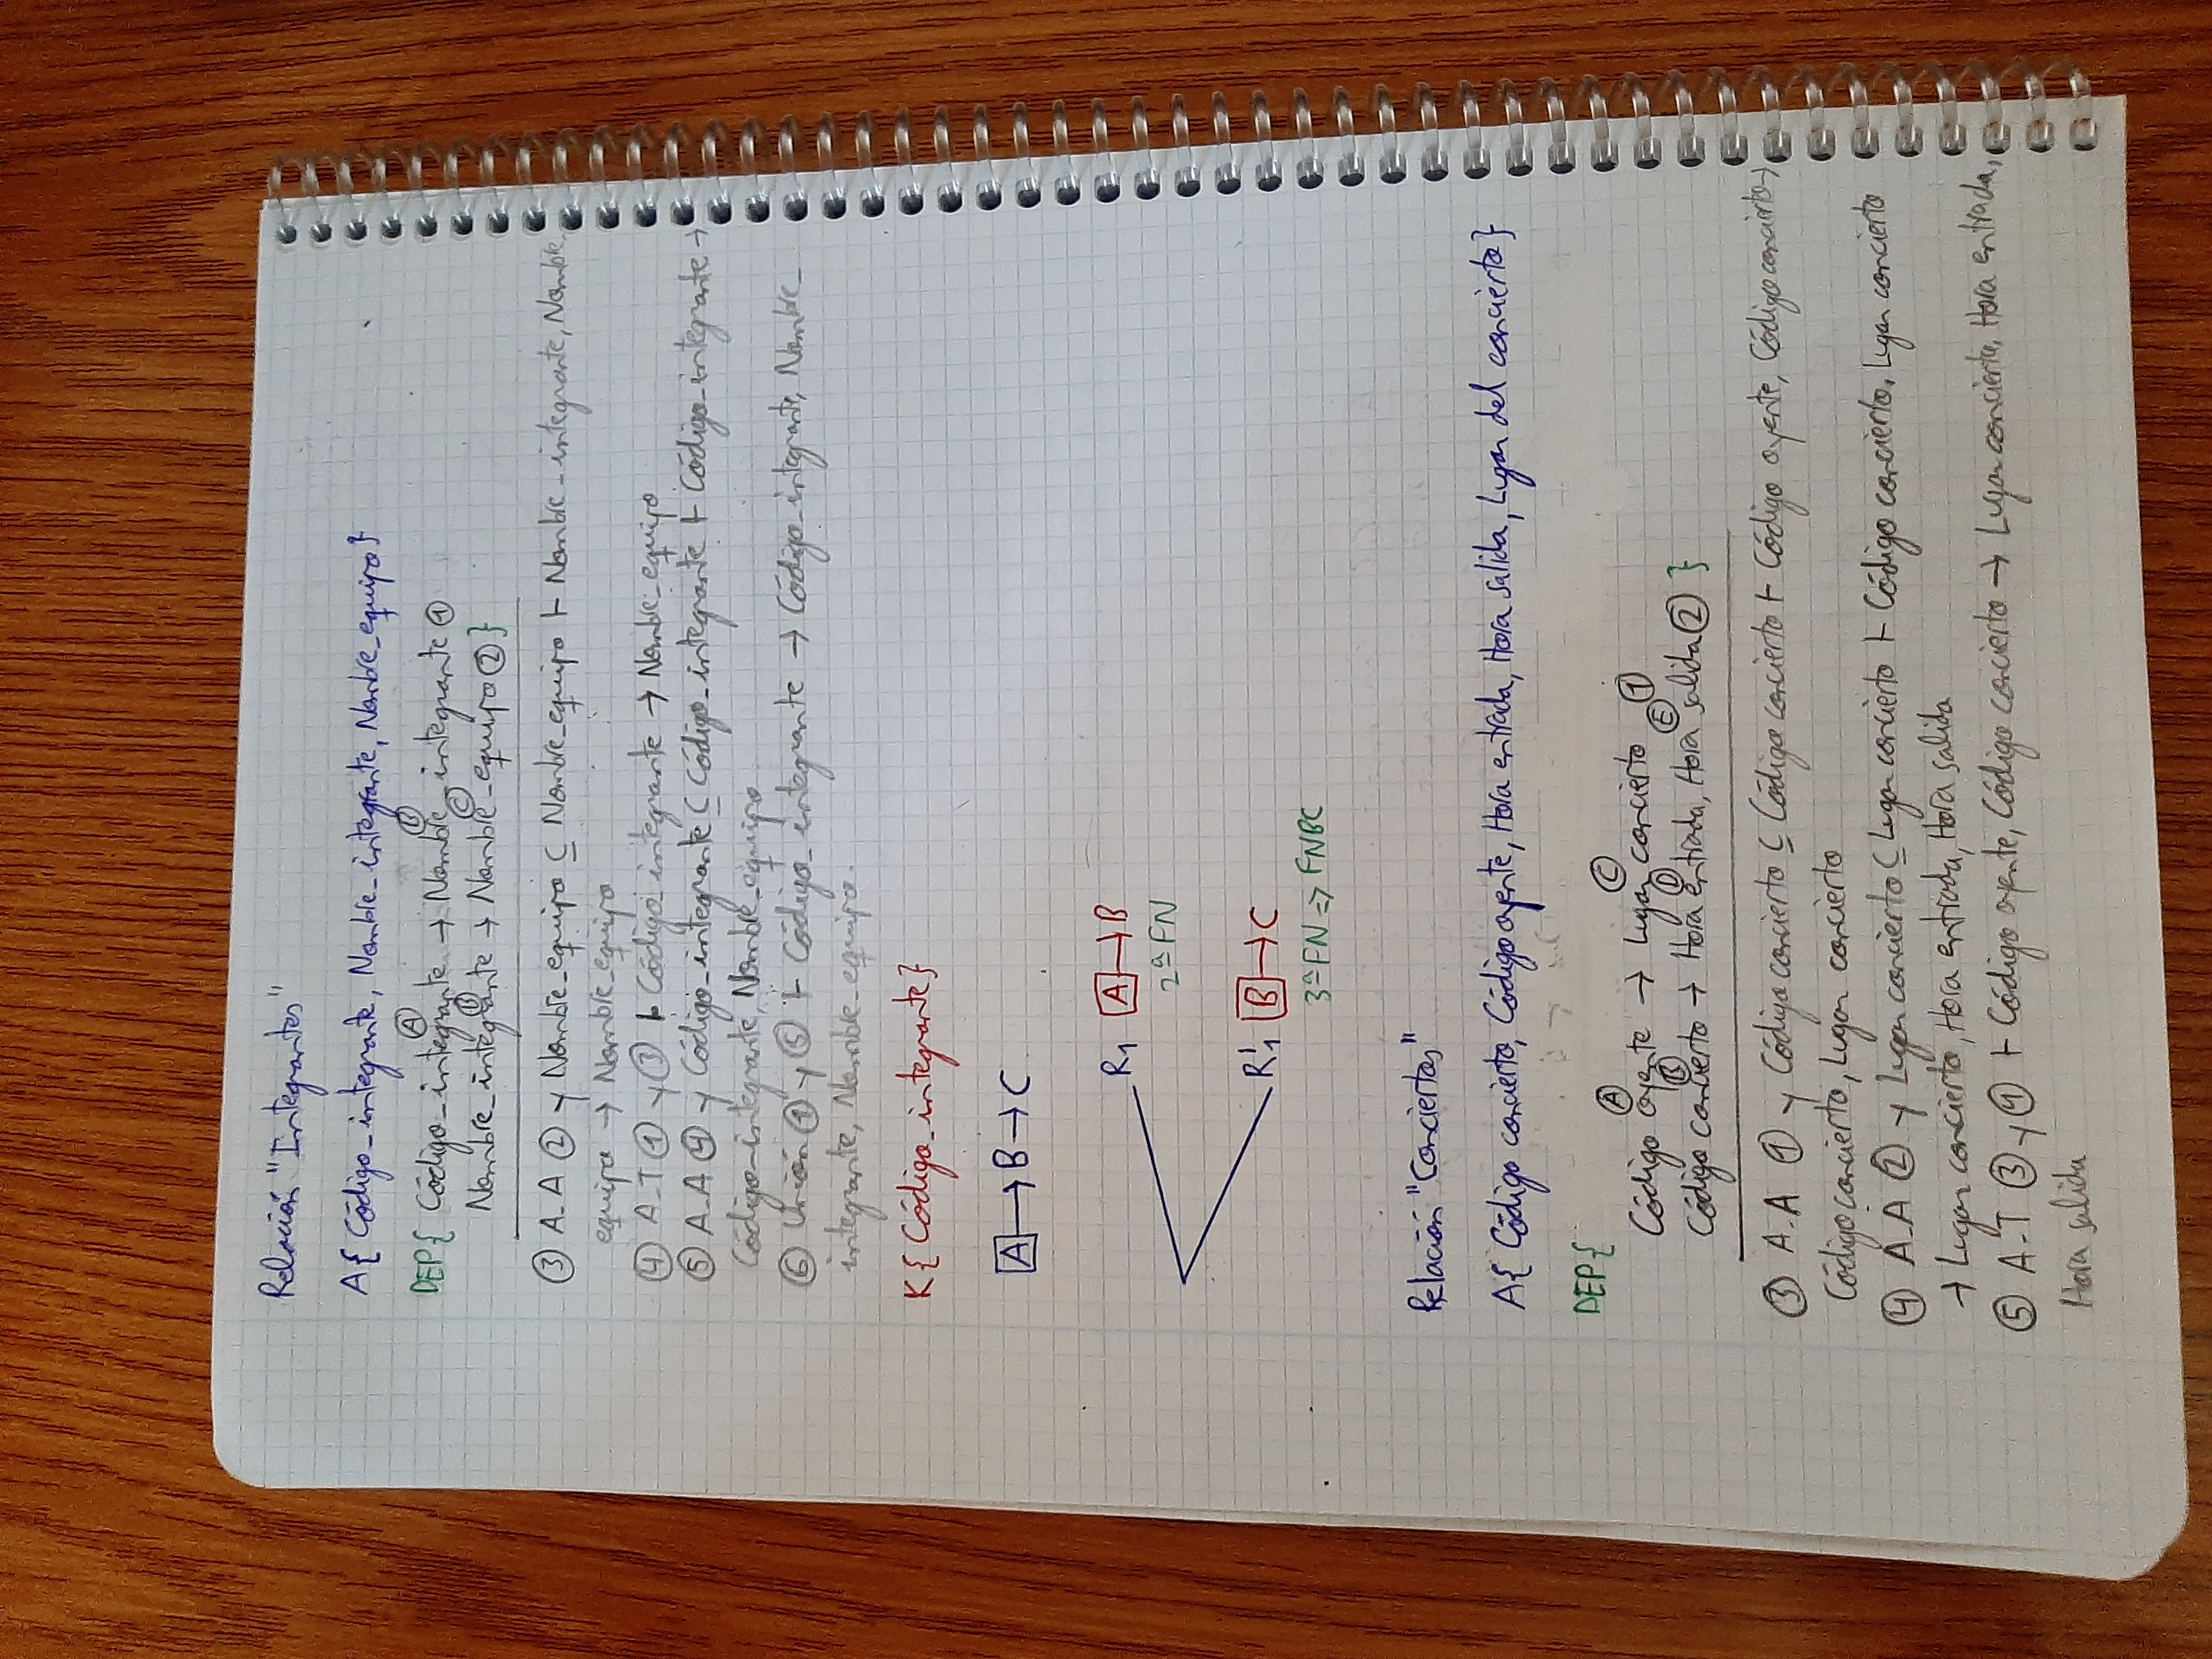 Relación "Integrantes"
A{ Código_integrante, Nombre_integrante, Nombre_equipo}
Ⓐ Ⓑ
DEP{ Código_integrante → Nombre_integrante ①
Ⓑ Ⓒ
Nombre_integrante → Nombre_equipo ② }
③ A.A ② y Nombre_equipo ⊆ Nombre_equipo ⊢ Nombre_integrante, Nombre_
equipo → Nombre_equipo
④ A.T ① y ③ ⊢ Código_integrante → Nombre_equipo
⑤ A.A ④ y Código_integrante ⊆ Código_integrante ⊢ Código_integrante →
Código_integrante, Nombre_equipo
⑥ Unión ① y ⑤ ⊢ Código_integrante → Código_integrante, Nombre_
integrante, Nombre_equipo.
K{ Código_integrante}
A → B → C
R1 A → B
2ª FN
R'1 B → C
3ª FN => FNBC
Relación "Conciertos"
A{ Código concierto, Código oyente, Hora entrada, Hora salida, Lugar del concierto}
DEP{
Ⓐ Ⓒ
Código oyente → Lugar concierto ①
Ⓑ Ⓓ Ⓔ
Código concierto → Hora entrada, Hora salida ② }
③ A.A ① y Código concierto ⊆ Código concierto ⊢ Código oyente, Código concierto →
Código concierto, Lugar concierto
④ A.A ② y Lugar concierto ⊆ Lugar concierto ⊢ Código concierto, Lugar concierto
→ Lugar concierto, Hora entrada, Hora salida
⑤ A.T ③ y ④ ⊢ Código oyente, Código concierto → Lugar concierto, Hora entrada,
Hora salida